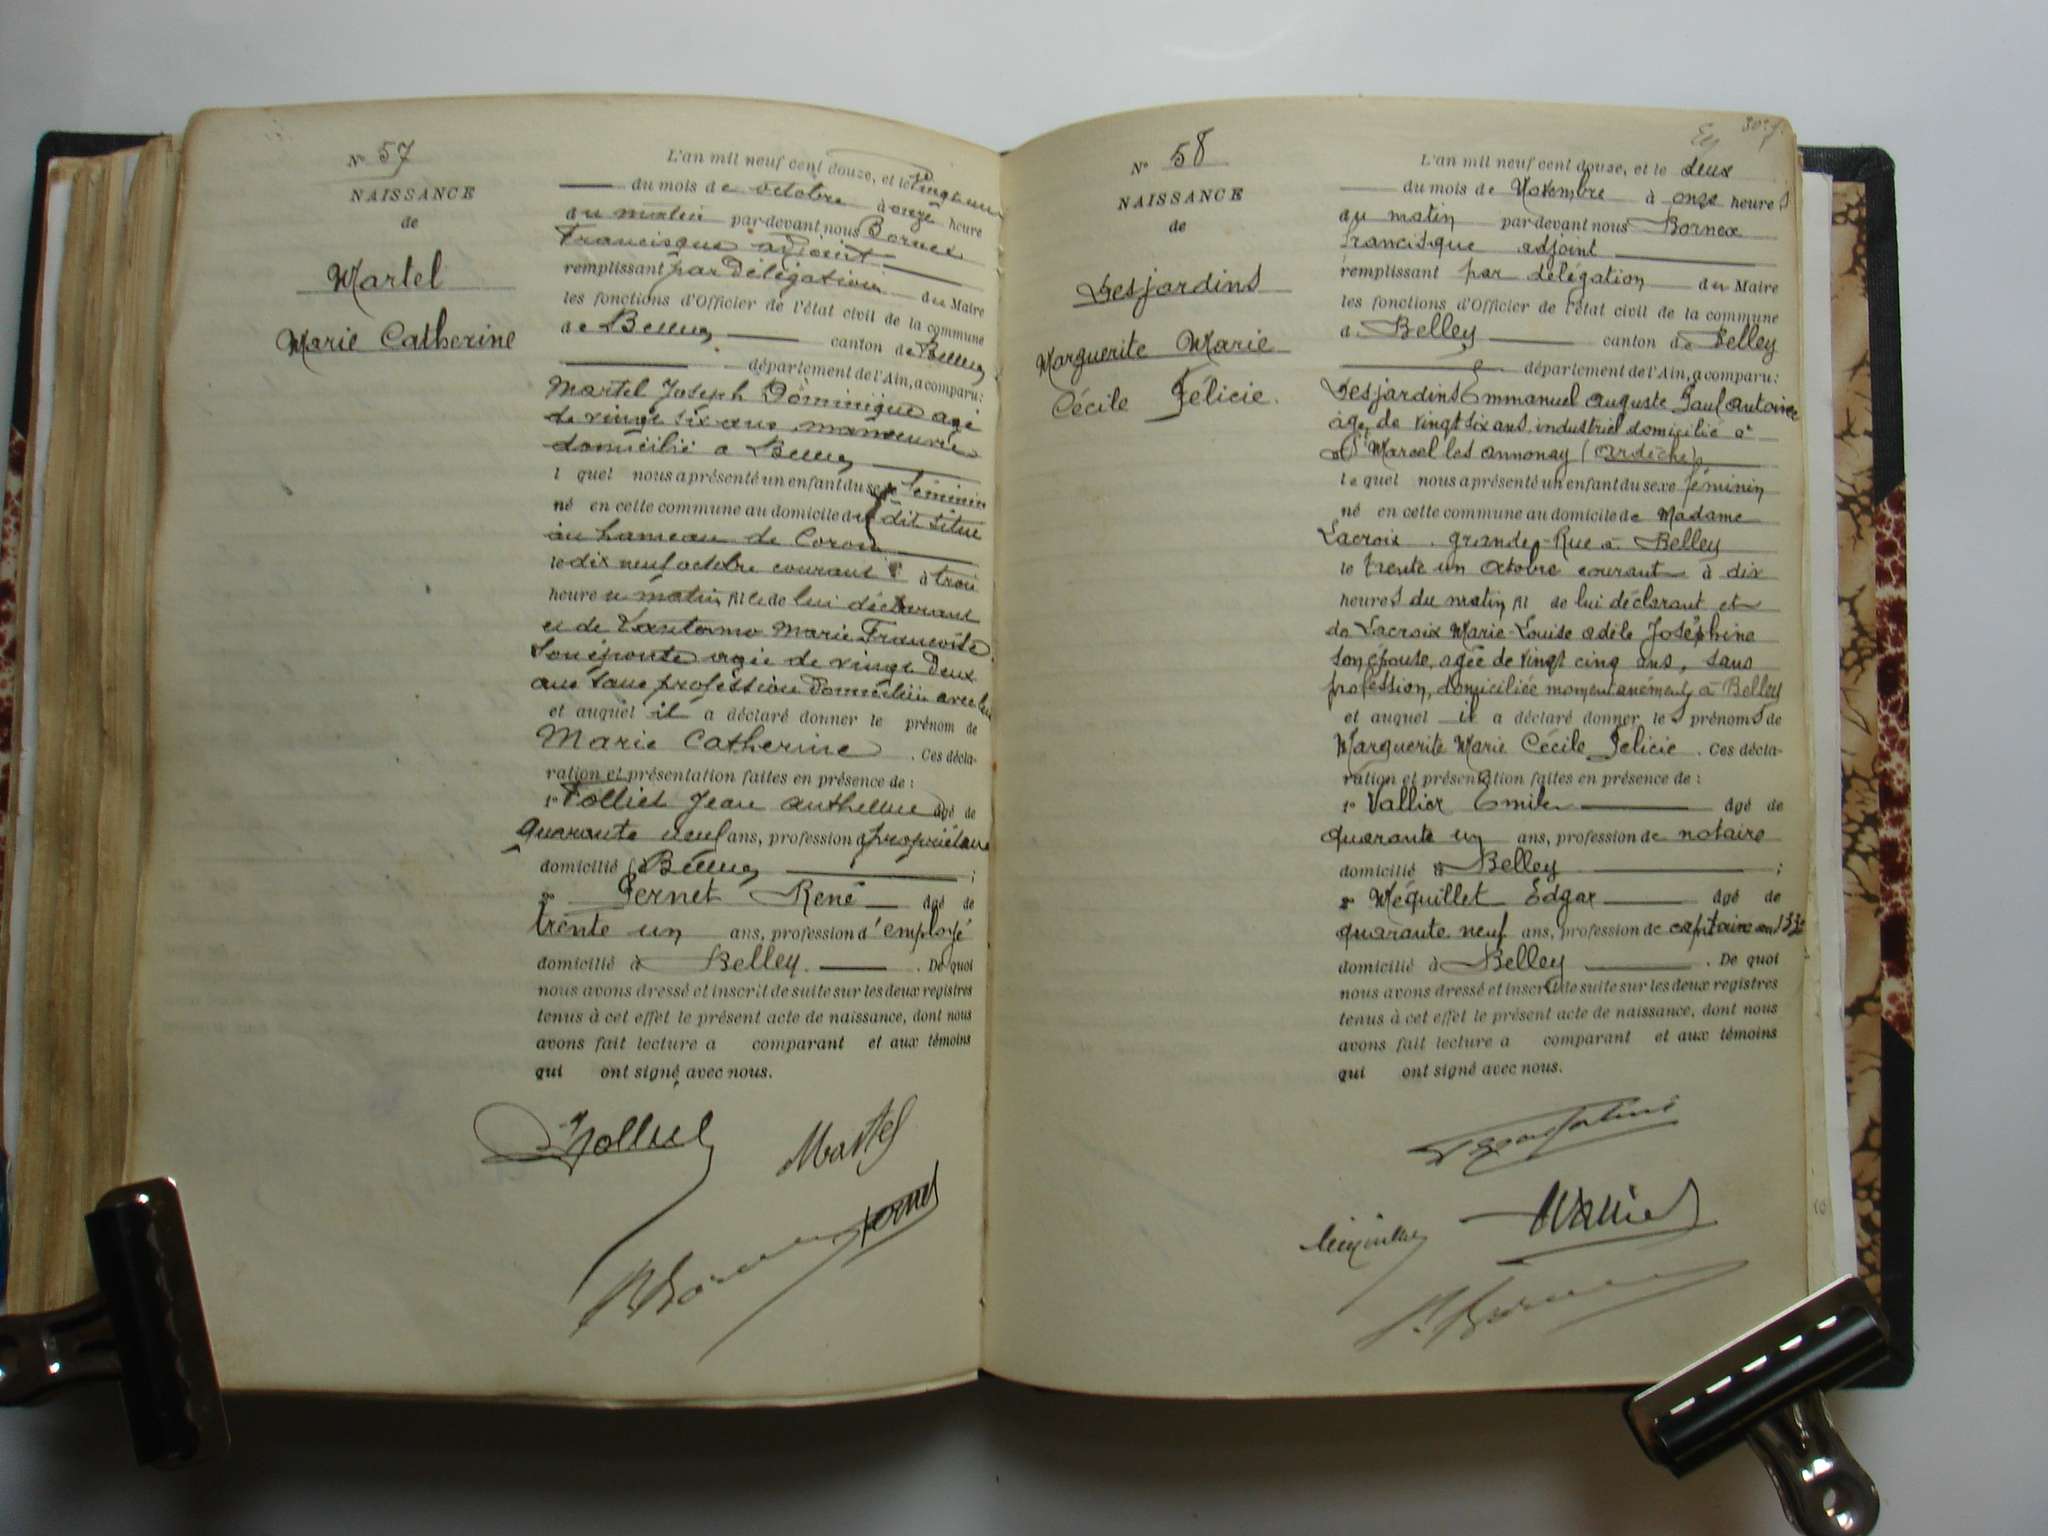 N° 57
NAISSANCE
de
Martel
Marie Catherine
L'an mil neuf cent douze, et le vingt un
du mois de octobre à onze heure
du matin par-devant nous Bornex
Francisque adjoint
remplissant par délégation du Maire
les fonctions d'Officier de l'état civil de la commune
de Belley canton de Belley
département de l'Ain, a comparu:
Martel Joseph Dominique agé
de vingt six ans, manœuvre
domicilié a Belley
l quel nous a présenté un enfant du sexe féminin
né en cette commune au domicile du dit situé
au hameau de Coron
le dix neuf octobre courant à trois
heure u matin fille de lui déclarant
et de Marie Françoise
son épouse agée de vingt deux
ans sans profession domiciliée avec lui
et auquel il a déclaré donner le prénom de
Marie Catherine. Ces décla-
ration et présentation faites en présence de :
1° Folliet Jean Anthelme âgé de
quarante neuf ans, profession d propriétaire
domicilié à Belley ;
2° Pernet René âgé de
trente un ans, profession d'employé
domicilié à Belley. De quoi
nous avons dressé et inscrit de suite sur les deux registres
tenus à cet effet le présent acte de naissance, dont nous
avons fait lecture a comparant et aux témoins
qui ont signé avec nous.
Folliet Martel
Bornex Pernet
N° 58
NAISSANCE
de
Desjardins
Marguerite Marie
Cécile Félicie.
L'an mil neuf cent douze, et le deux
du mois de Novembre à onze heures
du matin par-devant nous Bornex
francisque adjoint
remplissant par délégation du Maire
les fonctions d'Officier de l'état civil de la commune
d Belley canton de Belley
département de l'Ain, a comparu:
Desjardins Emmanuel Auguste Paul Antoine
âgé de vingt six ans, industriel domicilié à
St Marcel les Annonay (Ardèche)
le quel nous a présenté un enfant du sexe féminin
né en cette commune au domicile de Madame
Lacroix, grande-Rue à Belley
le trente un octobre courant à dix
heures du matin, fil de lui déclarant et
de Lacroix Marie-Louise Adèle Joséphine
son épouse, agée de vingt cinq ans, sans
profession, domiciliée momentanément à Belley
et auquel il a déclaré donner les prénoms de
Marguerite Marie Cécile Félicie. Ces décla-
ration et présentation faites en présence de :
1° Vallier Emile âgé de
quarante un ans, profession de notaire
domicilié à Belley ;
2° Méquillet Edgar âgé de
quarante neuf ans, profession de capitaine au 133e
domicilié à Belley. De quoi
nous avons dressé et inscrit de suite sur les deux registres
tenus à cet effet le présent acte de naissance, dont nous
avons fait lecture a comparant et aux témoins
qui ont signé avec nous.
Méquillet Vallier
Bornex